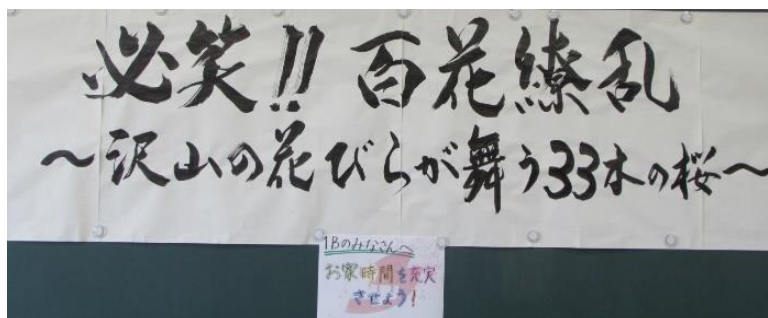 必笑!! 百花繚乱
～沢山の花びらが舞う33本の桜～
1Bのみなさんへ
お家時間を充実
させよう!